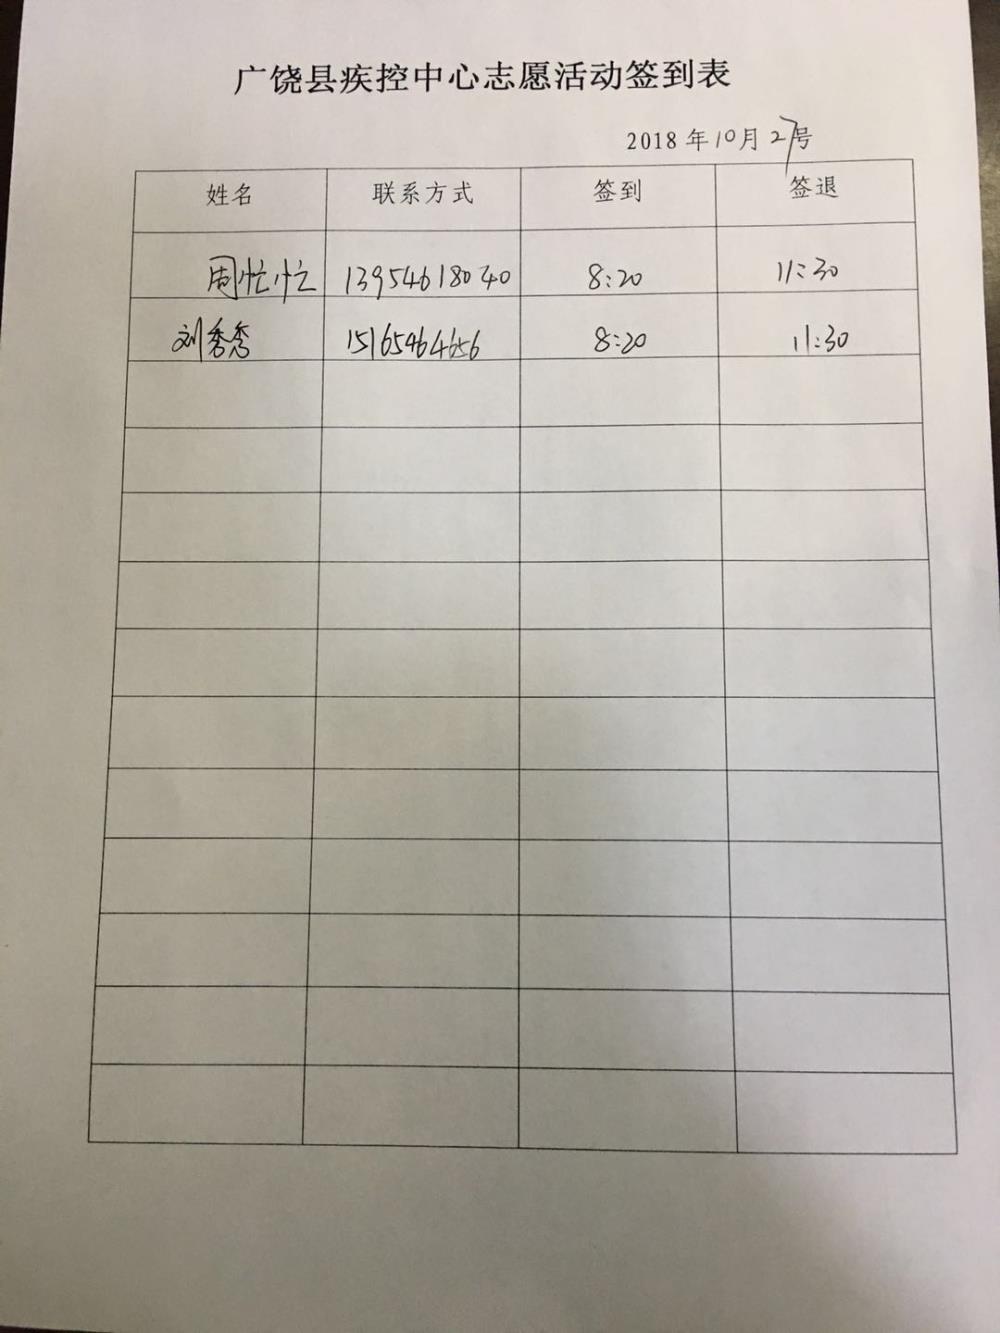 广饶县疾控中心志愿活动签到表
2018 年 10 月 27 号
姓名 联系方式 签到 签退
周忙忙 13954618040 8:20 11:30
刘秀秀 15165464656 8:20 11:30